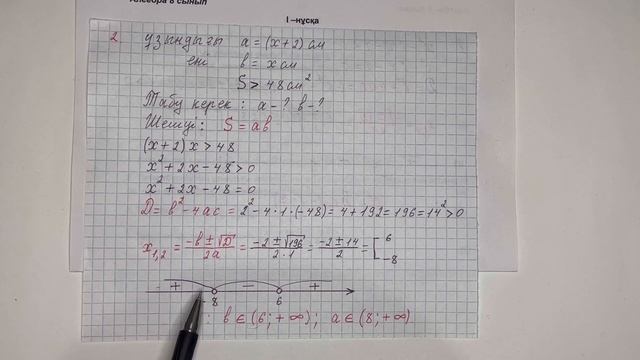 Алгебра 8 сынып
I –нұсқа
2. ұзындығы a = (x+2) см
ені b = x см
S > 48 см²
Табу керек: a - ? b - ?
Шешуі: S = ab
(x+2)x > 48
x² + 2x - 48 > 0
x² + 2x - 48 = 0
D = b² - 4ac = 2² - 4·1·(-48) = 4 + 192 = 196 = 14² > 0
x₁,₂ = (-b ± √D)/2a = (-2 ± √196)/(2·1) = (-2 ± 14)/2 = [6; -8
+ - +
8 6
: b ∈ (6; +∞); a ∈ (8; +∞)